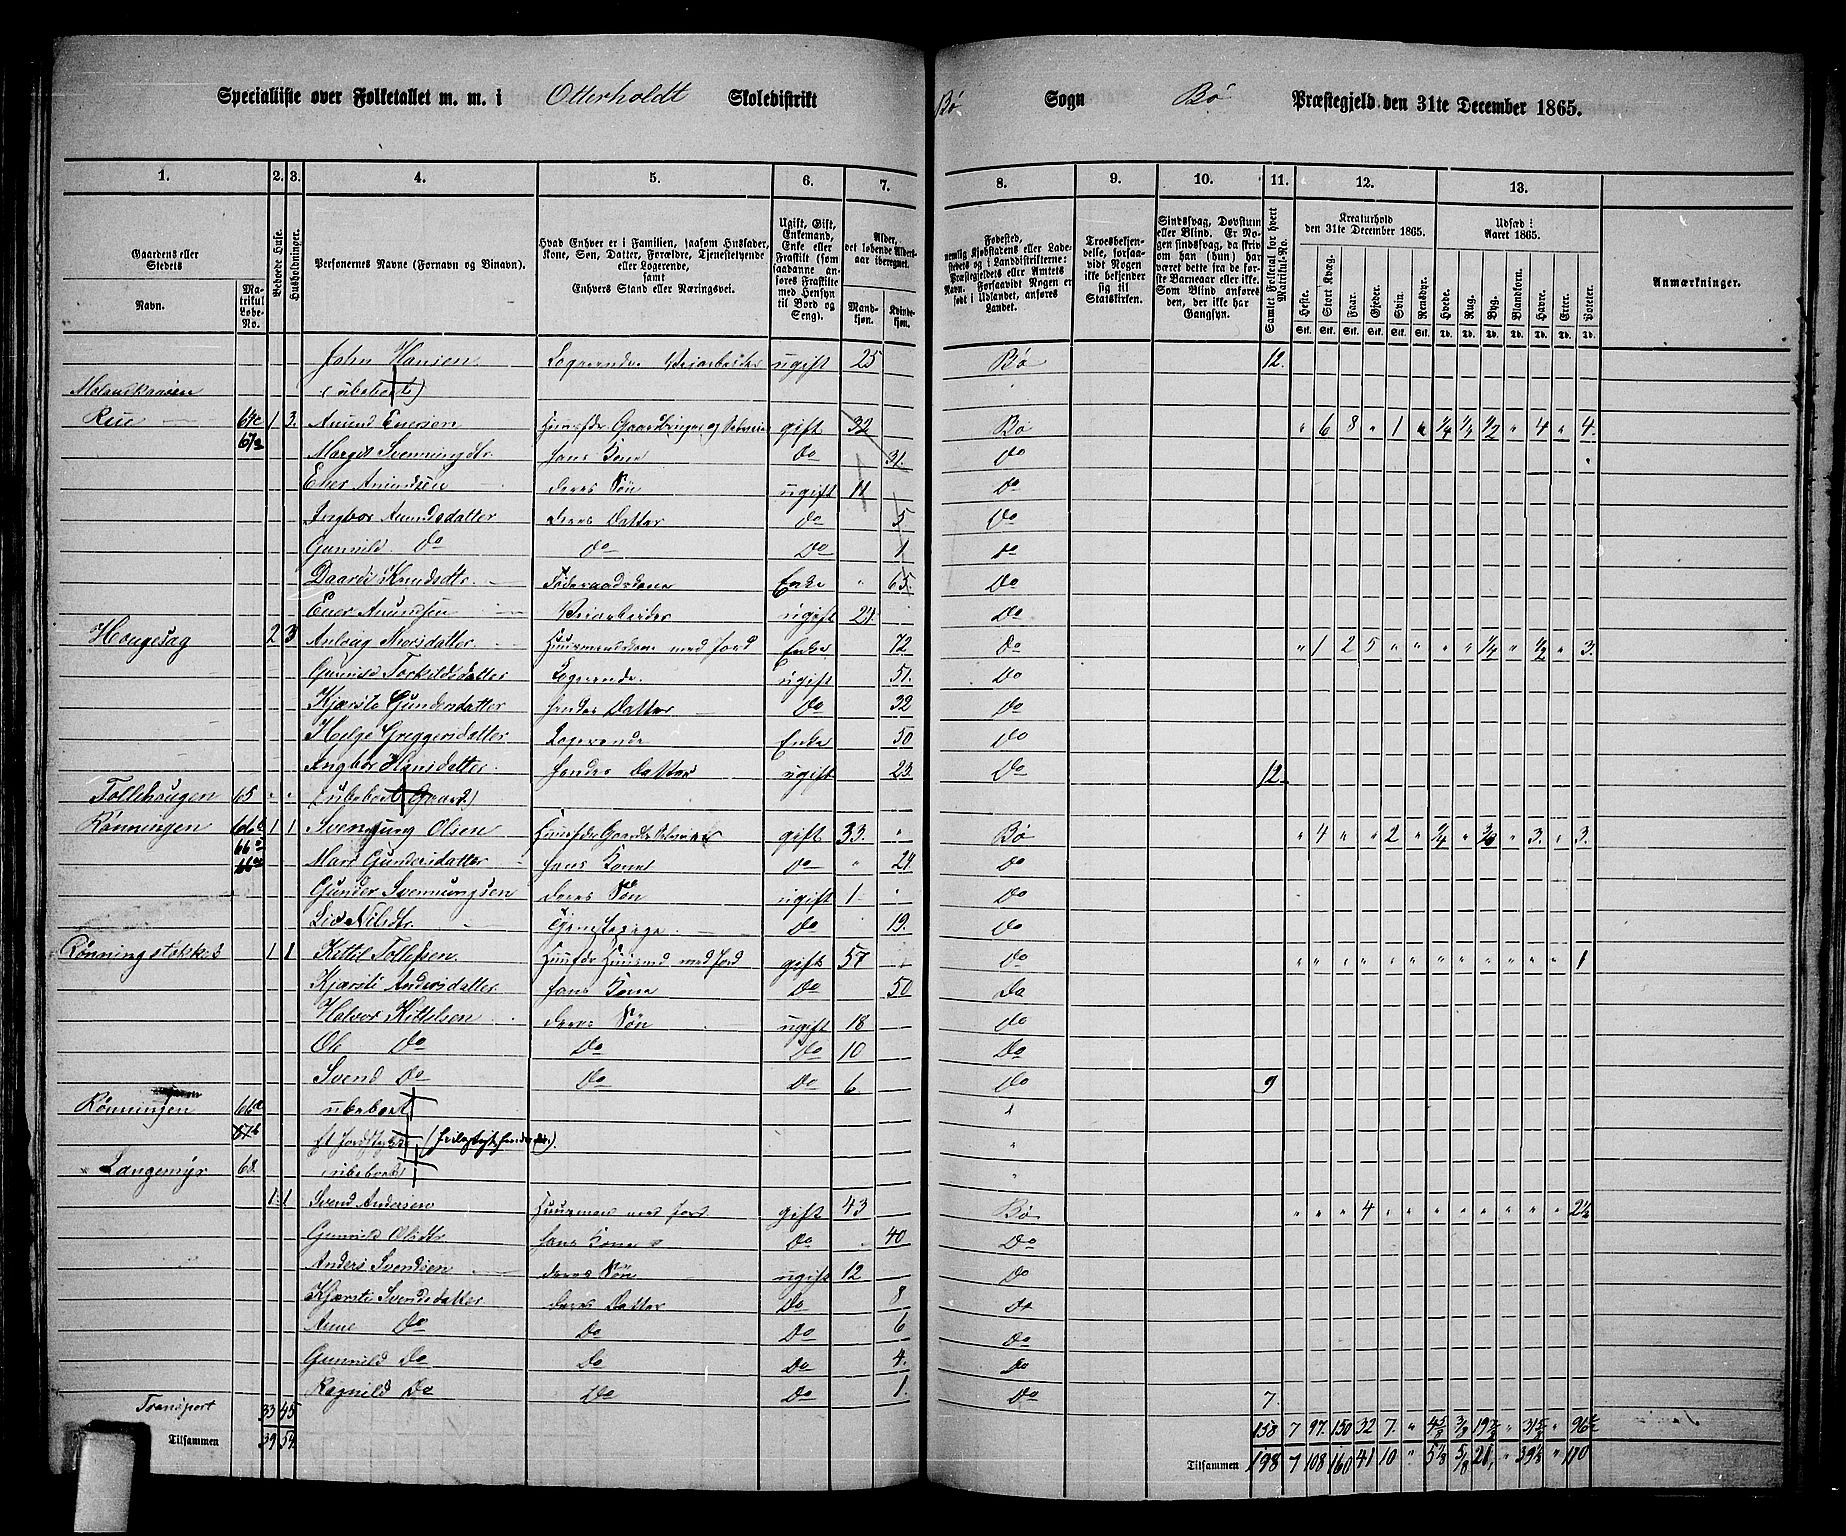 Specialliste over Folketallet m. m. i Otterholdt Skoledistrikt Bø Sogn Bø Præstegjeld den 31te December 1865.
1. 2. 3. 4. 5. 6. 7. 8. 9. 10. 11. 12. 13.
Gaardens eller Stedets
Navn. Matrikul Løbe-No.
Beboede Huse.
Husholdninger.
Personernes Navne (Fornavn og Vinavn).
Hvad Enhver er i Familien, saasom Husfader, Kone, Søn, Datter, Forældre, Tjenestetyende eller Logerende, samt Enhvers Stand eller Næringsvei.
Ugift, Gift, Enkemand, Enke eller Fraskilt (som saadanne ansøres Fraskilte med Hensyn til Bord og Seng).
Alder, det løbende Alders-aar iberegnet.
Mandkjøn. Kvindekjøn.
Fødested,
Troesbekjendelse, forsaavidt Nogen ikke bekjender sig til Statskirken.
Sindssvag, Døvstum eller Blind. Er Nogen sindssvag, da skriv om han (hun) har været dette fra de første Barneaar eller ikke. Som Blind ansøres den, der ikke har Gangsyn.
Samlet Folketal for hvert Matrikul-No.
Kreaturhold den 31te December 1865.
Heste. Stort Kvæg. Faar. Gjeder. Svin. Rensdyr.
Udsæd i Aaret 1865.
Hvede. Rug. Byg. Blandkorn. Havre. Erter. Poteter.
Anmærkninger.
John Hansen Logerende Veiarbeider ugift 25 Bø 12.
(ubeboet)
Rue 1 3. Amund Enersen gift 32 Bø " 6 8 " 1 " 1/4 1/4 1/2 " 4 " 4.
Margit Svenningdtr. hans Kone Do 31. Do
Ener Amundsen deres Søn ugift 11 Do
Ingbor Amundsdatter deres Datter Do 5 Do
Gunnild Do Do Do 1 Do
Daardi Knudsdtr. Føderaadskone Enke " 65. Do
Ener Amundsen Veiarbeider ugift 24. Do
Haugesag 2 3 Anlaug Thorsdatter Huusmandskone med Jord Enke 72. Do " 1 2 5 " " " " 1/4 " 1/2 " 3.
Gunnild Torkildsdatter Logerende. ugift 51. Do
Kjærsti Gundersdatter hendes Datter Do 32 Do
Helge Greggersdatter Logerende Enke 50 Do
Ingbor Hansdatter. hendes Datter ugift 23. Do 12
Tollehaugen 65 " " (ubeboet Gaard.)
Rønningen 1 1 Svennung Olsen gift 33. " Bø " 4 " " 2 " " 3. " 3.
Mari Gundersdatter hans Kone Do " 24 Do
Gunder Svennungsen deres Søn ugift 1. " Do
Liv Nilsdtr. Tjenestepige Do 19. Do
1 1 Kittel Tollefsen Huusfdr Huusmd med Jord gift 57 Do " " " " " " " " " " " " 1
Kjærsti Andersdatter hans Kone Do 50 Do
Halvor Kittelsen deres Søn ugift 18 Do
Ole Do Do Do 10 Do
Svend Do Do Do 6 Do 9
Rønningen ubeboet
(ubeboet)
Langemyr 68.
1. 1 Svend Andersen Huusmand med Jord gift 43 Bø " " " 4 " " " " " " " " 2 1/2
Gunnild Olsdtr hans Kone Do 40 Do
Anders Svendsen deres Søn ugift 12 Do
Kjærsti Svendsdatter deres Datter Do 8 Do
Anne Do Do Do 6 Do
Gunnild Do Do Do 4. Do
Ragnild Do Do Do 1. Do 7.
Transport 33 45 158 7 97. 150 32 7. "
Tilsammen 39 54. Tilsammen 198 7 108 160 41 10 " " " 110